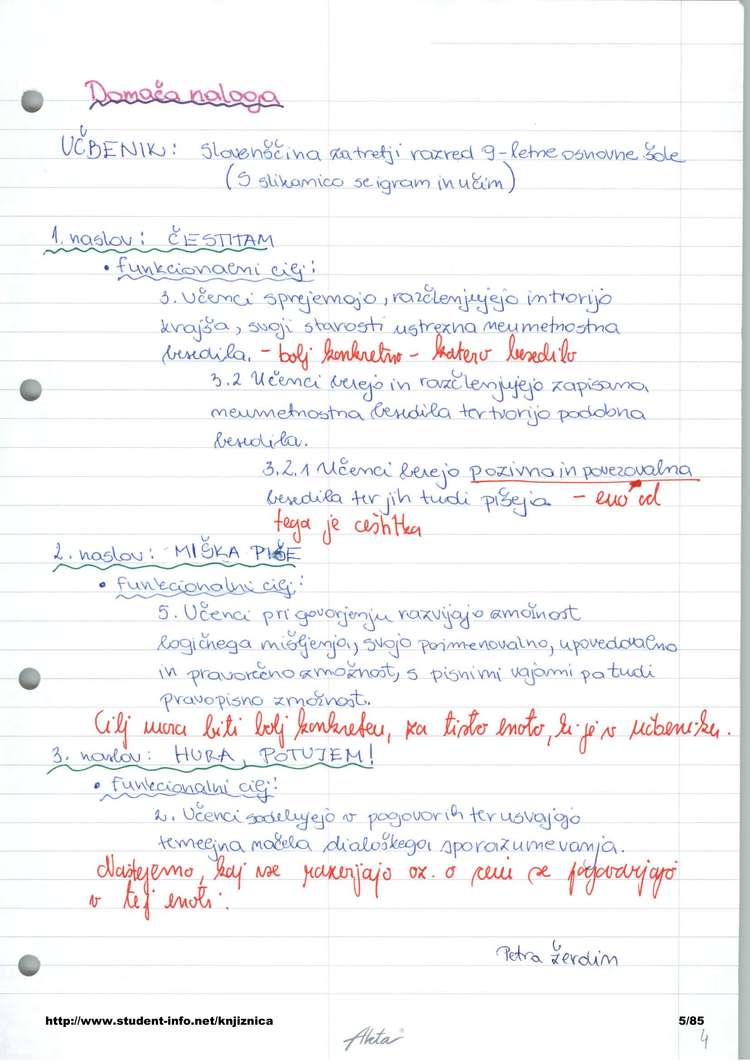 Domača naloga
UČBENIK: Slovenščina za tretji razred 9-letne osnovne šole
(S slikanico se igram in učim)
1. naslov: ČESTITAM
• funkcionalni cilj:
3. Učenci sprejemajo, razčlenjujejo in tvorijo
krajša, svoji starosti ustrezna neumetnostna
besedila. - bolj konkretno - katero besedilo
3.2 Učenci berejo in razčlenjujejo zapisana
neumetnostna besedila ter tvorijo podobna
besedila.
3.2.1 Učenci berejo pozivna in povezovalna
besedila ter jih tudi pišejo. - eno od
tega je čestitka
2. naslov: MIŠKA PIŠE
• funkcionalni cilj:
5. Učenci pri govorjenju razvijajo zmožnost
logičnega mišljenja, svojo poimenovalno, upovedovalno
in pravorečno zmožnost, s pisnimi vajami pa tudi
pravopisno zmožnost.
Cilj mora biti bolj konkreten, za tisto enoto, ki je v učbeniku.
3. naslov: HURA, POTUJEM!
• funkcionalni cilj:
2. Učenci sodelujejo v pogovorih ter usvajajo
temeljna načela dialoškega sporazumevanja.
Naštejemo, kaj vse oz. o čem se pogovarjajo
v tej enoti.
Petra Žerdin
http://www.student-info.net/knjiznica
5/85
Aheta
4